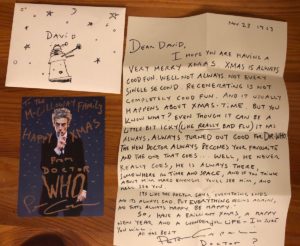 DAVID
TO THE
McGILLOWAY FAMILY
HAPPY XMAS
FROM
DOCTOR
WHO
NOV 23
DEAR DAVID,
I HOPE YOU ARE HAVING A
VERY MERRY XMAS. XMAS IS ALWAYS
GOOD FUN. WELL NOT ALWAYS. NOT EVERY
SINGLE SECOND. REGENERATING IS NOT
COMPLETELY GOOD FUN. AND IT USUALLY
HAPPENS ABOUT XMAS-TIME. BUT YOU
KNOW WHAT? EVEN THOUGH IT CAN BE A
LITTLE BIT ICKY (LIKE REALLY BAD FLU) IT HAS
ALWAYS, ALWAYS TURNED OUT GOOD FOR DR. WHO.
THE NEW DOCTOR ALWAYS BECOMES YOUR FAVOURITE
AND THE ONE THAT GOES... WELL, HE NEVER
REALLY GOES, HE IS ALWAYS THERE,
SOMEWHERE IN TIME AND SPACE, AND IF YOU THINK
ABOUT HIM HARD ENOUGH YOU'LL SEE HIM, AND
HE'LL SEE YOU.
IT'S LIKE THE DOCTOR SAYS, EVERYTHING ENDS
AND IT'S ALWAYS SAD. BUT EVERYTHING BEGINS AGAIN,
AND THAT'S ALWAYS HAPPY. BE HAPPY.
SO, HAVE A BRILLIANT XMAS, A HAPPY
NEW YEAR AND A WONDERFUL LIFE. I'M SURE
YOU WILL.
ALL THE BEST
DOCTOR